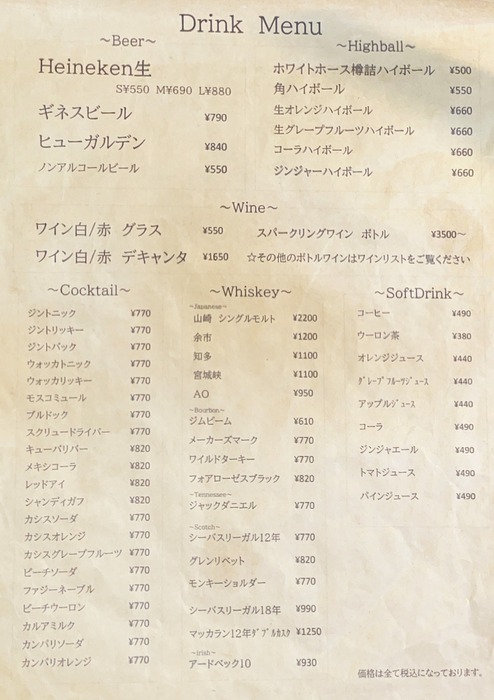 Drink Menu
～Beer～
Heineken生
S¥550 M¥690 L¥880
ギネスビール ¥790
ヒューガルデン ¥840
ノンアルコールビール ¥550
～Highball～
ホワイトホース樽詰ハイボール ¥500
角ハイボール ¥550
生オレンジハイボール ¥660
生グレープフルーツハイボール ¥660
コーラハイボール ¥660
ジンジャーハイボール ¥660
～Wine～
ワイン白/赤 グラス ¥550
ワイン白/赤 デキャンタ ¥1650
スパークリングワイン ボトル ¥3500～
☆その他のボトルワインはワインリストをご覧ください
～Cocktail～
ジントニック ¥770
ジントリッキー ¥770
ジントバック ¥770
ウォッカトニック ¥770
ウォッカリッキー ¥770
モスコミュール ¥770
ブルドック ¥770
スクリュードライバー ¥770
キューバリバー ¥820
メキシコーラ ¥820
レッドアイ ¥820
シャンディガフ ¥820
カシスソーダ ¥770
カシスオレンジ ¥770
カシスグレープフルーツ ¥770
ピーチソーダ ¥770
ファジーネーブル ¥770
ピーチウーロン ¥770
カルアミルク ¥770
カンパリソーダ ¥770
カンパリオレンジ ¥770
～Whiskey～
~Japanese~
山崎 シングルモルト ¥2200
余市 ¥1200
知多 ¥1100
宮城峡 ¥1100
AO ¥950
~Bourbon~
ジムビーム ¥610
メーカーズマーク ¥770
ワイルドターキー ¥770
フォアローゼスブラック ¥820
~Tennessee~
ジャックダニエル ¥770
~Scotch~
シーバスリーガル12年 ¥770
グレンリベット ¥820
モンキーショルダー ¥770
シーバスリーガル18年 ¥990
マッカラン12年ﾀﾞﾌﾞﾙｶｽｸ ¥1250
~irish~
アードベック10 ¥930
～SoftDrink～
コーヒー ¥490
ウーロン茶 ¥380
オレンジジュース ¥440
ｸﾞﾚｰﾌﾟﾌﾙｰﾂｼﾞｭｰｽ ¥440
アップルｼﾞｭｰｽ ¥440
コーラ ¥490
ジンジャエール ¥490
トマトジュース ¥490
パインジュース ¥490
価格は全て税込になっております。